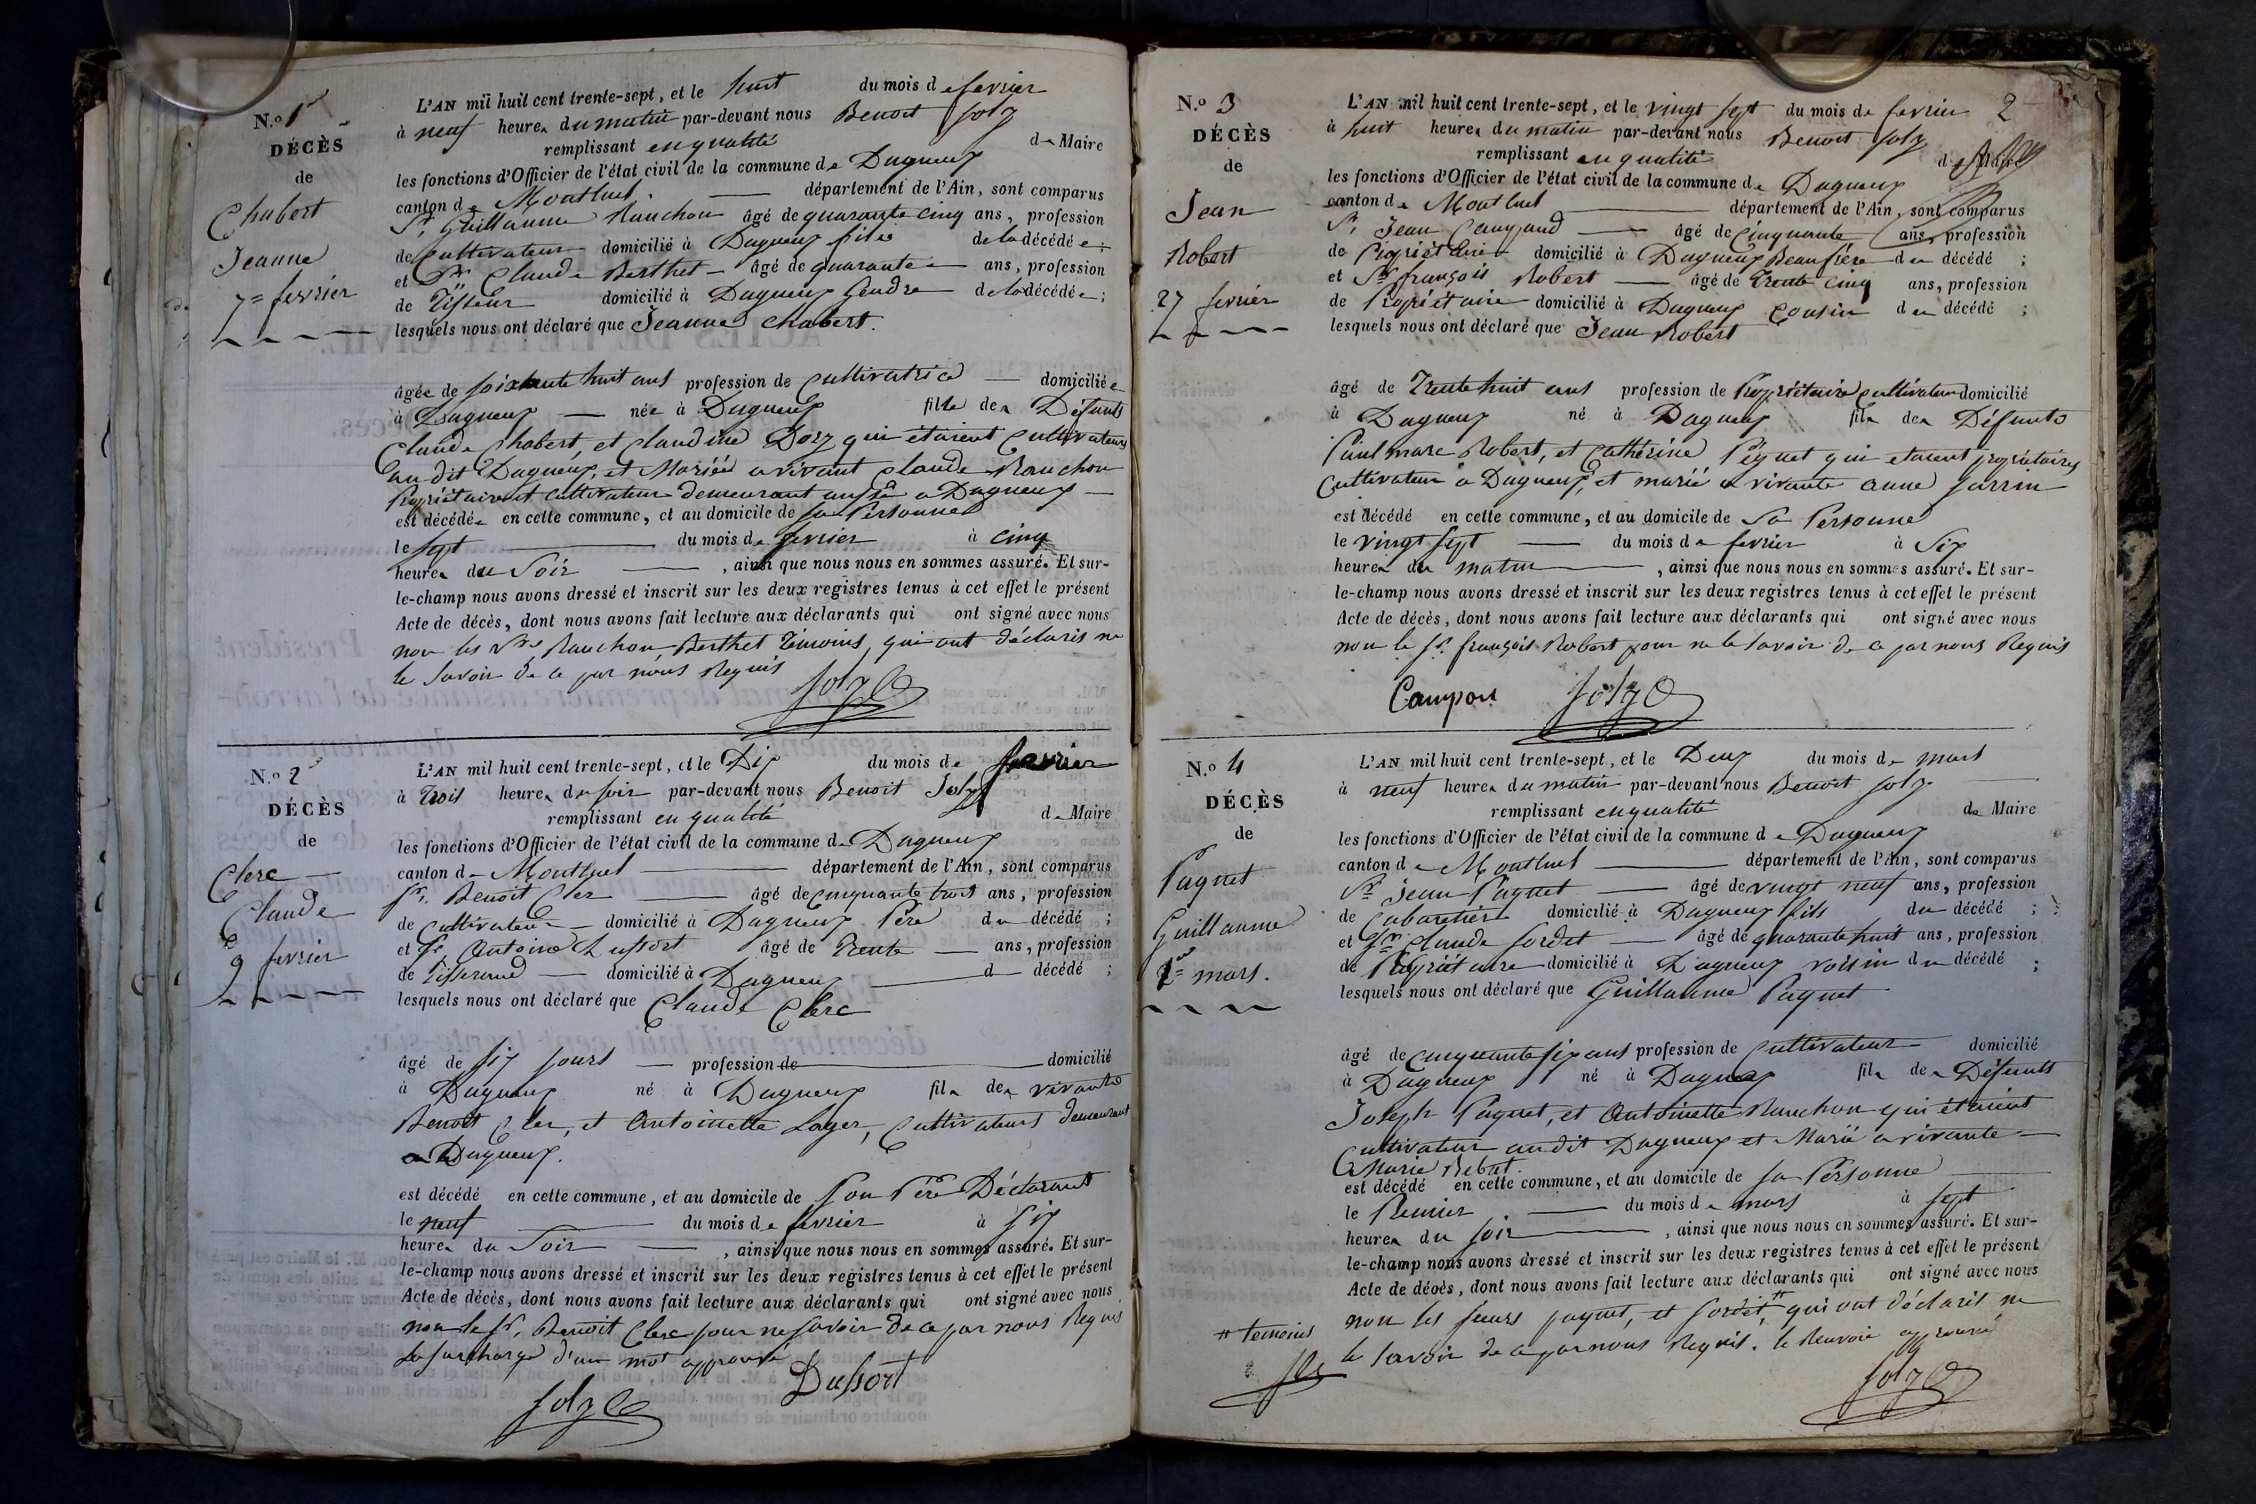 N.o 1er
DÉCÈS
de
Chabert
Jeanne
7= fevrier
L'AN mil huit cent trente-sept, et le huit du mois de fevrier
à neuf heures du matin par-devant nous Benoit Joly
remplissant en qualité de Maire
les fonctions d'Officier de l'état civil de la commune de Dagneux
canton de Montluel. département de l'Ain, sont comparus
Sr. Guillaume Ranchon âgé de quarante cinq ans, profession
de cultivateur domicilié à Dagneux fils de la décédée;
et Sr Claude Berthet âgé de quarante ans, profession
de Tisseur domicilié à Dagneux Gendre de la décédée;
lesquels nous ont déclaré que Jeanne Chabert.
âgée de soixante huit ans profession de Cultivatrice domiciliée
à Dagneux née à Dagneux fille des Défunts
Claude Chabert, et Claudine qui étaient Cultivateurs
au dit Dagneux, et Mariée a vivant Claude Ranchon
Propriétaire et Cultivateur demeurant aussi a Dagneux
est décédée en cette commune, et au domicile de sa Personne
le sept du mois de fevrier à cinq
heures du Soir, ainsi que nous nous en sommes assuré. Et sur-
le-champ nous avons dressé et inscrit sur les deux registres tenus à cet effet le présent
Acte de décès, dont nous avons fait lecture aux déclarants qui ont signé avec nous
non les Srs Ranchon Berthet Témoins, qui ont déclarés ne
le Savoir de ce par nous Requis
Joly
N.o 2
DÉCÈS
de
Clerc
Claude
9 fevrier
L'AN mil huit cent trente-sept, et le Dix du mois de fevrier
à Trois heures du soir par-devant nous Benoit Joly
remplissant en qualité de Maire
les fonctions d'Officier de l'état civil de la commune de Dagneux
canton de Montluel département de l'Ain, sont comparus
Sr. Benoit Clerc âgé de cinquante trois ans, profession
de cultivateur domicilié à Dagneux Père du décédé;
et Sr Antoine Dussort âgé de Trente ans, profession
de Tisserand domicilié à Dagneux d décédé;
lesquels nous ont déclaré que Claude Clerc
âgé de six jours profession de domicilié
à Dagneux né à Dagneux fils des vivants
Benoit Clerc, et Antoinette Lager, Cultivateurs demeurant
a Dagneux.
est décédé en cette commune, et au domicile de son Père Déclarant
le neuf du mois de fevrier à six
heures du Soir, ainsi que nous nous en sommes assuré. Et sur-
le-champ nous avons dressé et inscrit sur les deux registres tenus à cet effet le présent
Acte de décès, dont nous avons fait lecture aux déclarants qui ont signé avec nous
non le Sr. Benoit Clerc pour ne savoir de ce par nous Requis
La surcharge d'un mot approuvé
Dussort
Joly
2
N.o 3
DÉCÈS
de
Jean
Robert
27 fevrier
L'AN mil huit cent trente-sept, et le vingt sept du mois de fevrier
à huit heures du matin par-devant nous Benoit Joly
remplissant en qualité de Maire
les fonctions d'Officier de l'état civil de la commune de Dagneux
canton de Montluel département de l'Ain, sont comparus
Sr. Jean âgé de Cinquante ans, profession
de Propriétaire domicilié à Dagneux Beaufrère du décédé;
et Sr françois Robert âgé de Trente Cinq ans, profession
de Propriétaire domicilié à Dagneux Cousin du décédé;
lesquels nous ont déclaré que Jean Robert
âgé de Trente huit ans profession de Propriétaire Cultivateur domicilié
à Dagneux né à Dagneux fils des Défunts
Paul marc Robert, et Cathérine Péquet qui etaient propriétaires
Cultivateur a Dagneux, et marié a vivante anne Jarrin
est décédé en cette commune, et au domicile de Sa Personne
le vingt sept du mois de fevrier à Six
heures du matin, ainsi que nous nous en sommes assuré. Et sur-
le-champ nous avons dressé et inscrit sur les deux registres tenus à cet effet le présent
Acte de décès, dont nous avons fait lecture aux déclarants qui ont signé avec nous
non le Sr. françois Robert pour ne le Savoir de ce par nous Requis
Joly
N.o 4
DÉCÈS
de
Paquet
Guillaume
1er mars.
L'AN mil huit cent trente-sept, et le Deux du mois de mars
à neuf heures du matin par-devant nous Benoit Joly
remplissant en qualité de Maire
les fonctions d'Officier de l'état civil de la commune de Dagneux
canton de Montluel département de l'Ain, sont comparus
Sr Jean Paquet âgé de vingt neuf ans, profession
de Cabaretier domicilié à Dagneux fils du décédé;
et Sr Claude Sordet âgé de quarante huit ans, profession
de Propriétaire domicilié à Dagneux voisin du décédé;
lesquels nous ont déclaré que Guillaume Paquet
âgé de cinquante six ans profession de Cultivateur domicilié
à Dagneux né à Dagneux fils des Défunts
Joseph Paquet, et Antoinette Ranchon qui étaient
Cultivateur au dit Dagneux et Marié a vivante
Marie Rebut.
est décédé en cette commune, et au domicile de sa Personne
le Premier du mois de mars à sept
heures du soir, ainsi que nous nous en sommes assuré. Et sur-
le-champ nous avons dressé et inscrit sur les deux registres tenus à cet effet le présent
Acte de décès, dont nous avons fait lecture aux déclarants qui ont signé avec nous
non les sieurs paquet, et Sordet, # qui ont déclarés ne
le savoir de ce par nous Requis. le Renvoie approuvé
# temoins
Joly